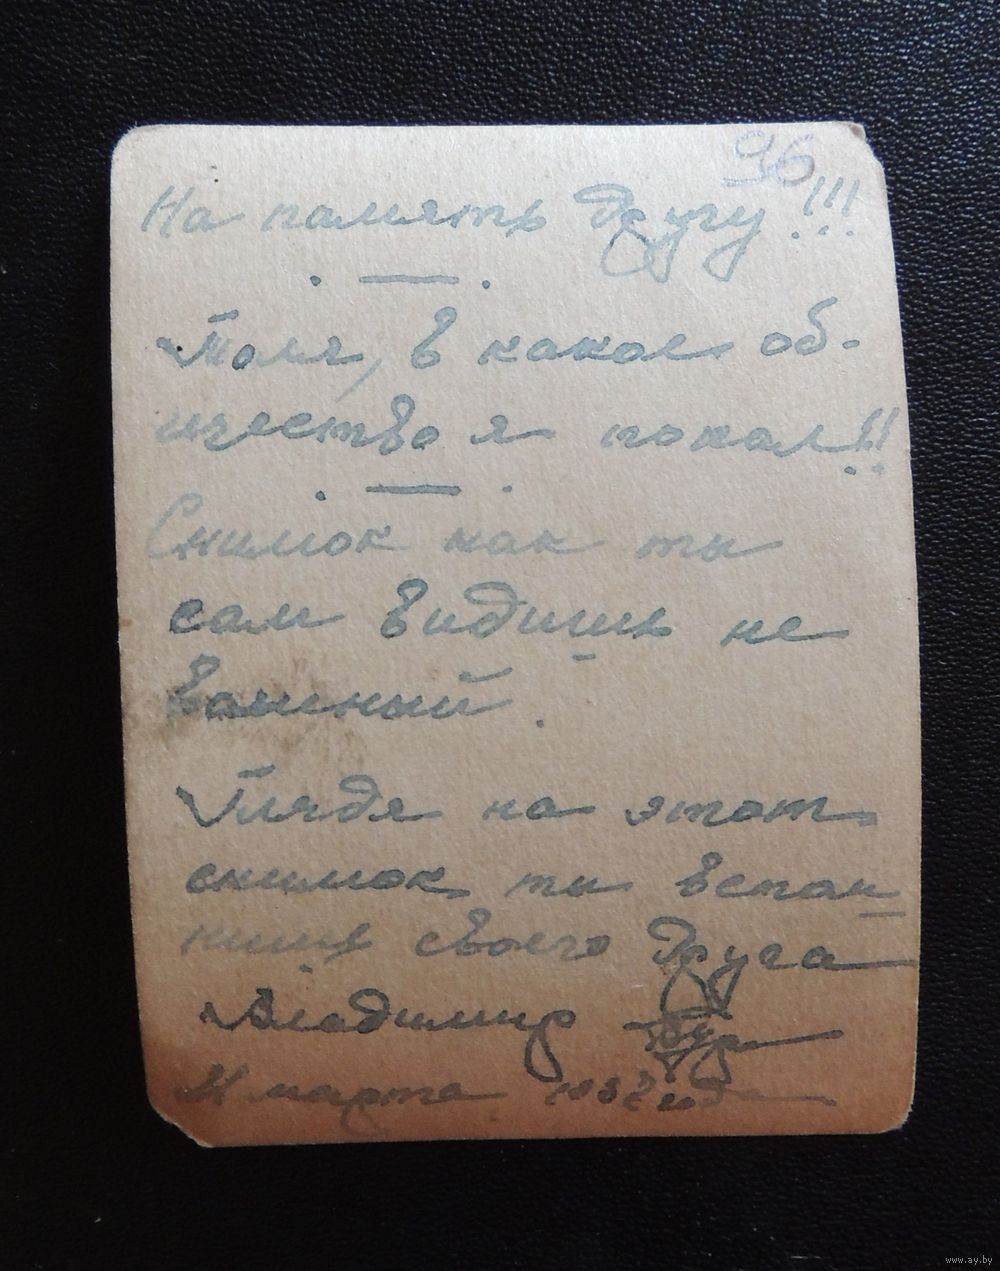 96
На память другу!!!
Толя, в какое об-
щество я попал!!
Снимок как ты
сам видишь не
важный.
Глядя на этот
снимок ты вспом
нишь своего друга
Владимир
марта года
www.ay.by